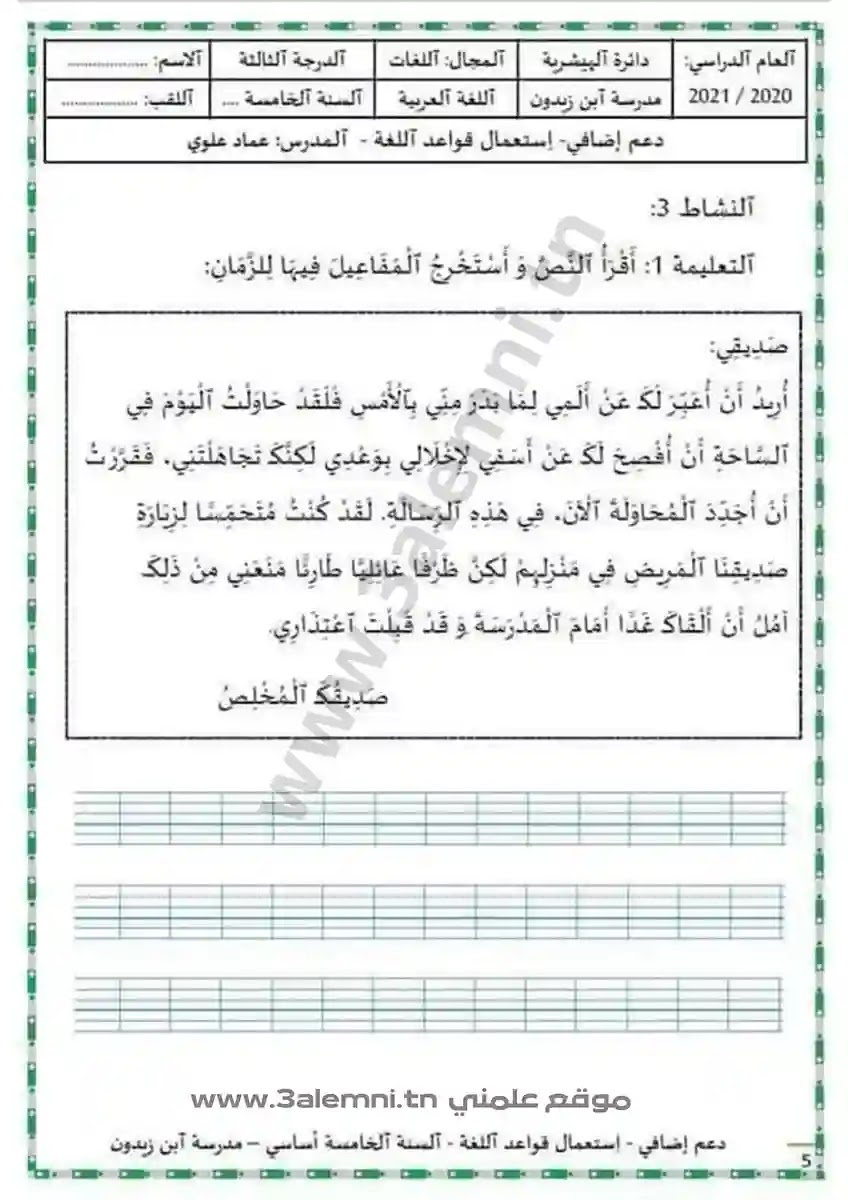 العام الدراسي: دائرة الهيشرية المجال: اللغات الدرجة الثالثة الاسم: ...................
2020 / 2021 مدرسة ابن زيدون اللغة العربية السنة الخامسة .... اللقب: ..................
دعم إضافي- إستعمال قواعد اللغة - المدرس: عماد علوي
النشاط 3:
التعليمة 1: أَقْرَأُ النَّصَّ وَ أَسْتَخْرِجُ الْمَفَاعِيلَ فِيهَا لِلزَّمَانِ:
صَدِيقِي:
أُرِيدُ أَنْ أُعَبِّرَ لَكَ عَنْ أَلَمِي لِمَا بَدَرَ مِنِّي بِالْأَمْسِ فَلَقَدْ حَاوَلْتُ الْيَوْمَ فِي
السَّاحَةِ أَنْ أُفْصِحَ لَكَ عَنْ أَسَفِي لِإِخْلَالِي بِوَعْدِي لَكِنَّكَ تَجَاهَلْتَنِي. فَقَرَّرْتُ
أَنْ أُجَدِّدَ الْمُحَاوَلَةَ الْآنَ. فِي هَذِهِ الرِّسَالَةِ. لَقَدْ كُنْتُ مُتَحَمِّسًا لِزِيَارَةِ
صَدِيقِنَا الْمَرِيضِ فِي مَنْزِلِهِمْ لَكِنْ ظَرْفًا عَائِلِيًّا طَارِئًا مَنَعَنِي مِنْ ذَلِكَ
آمُلُ أَنْ أَلْقَاكَ غَدًا أَمَامَ الْمَدْرَسَةِ وَ قَدْ قَبِلْتَ اعْتِذَارِي.
صَدِيقُكَ الْمُخْلِصُ
www.3alemni.tn
موقع علمني www.3alemni.tn
دعم إضافي - إستعمال قواعد اللغة - السنة الخامسة أساسي – مدرسة ابن زيدون
5